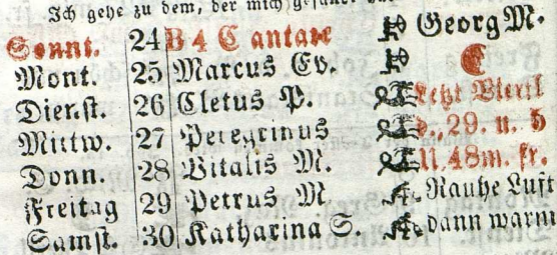 Ich gehe zu dem, der mich gesandt
Sonnt. 24 B 4 Cantate Georg M.
Mont. 25 Marcus Ev. C
Dienst. 26 Cletus P. Letzt Viertl
Mittw. 27 Peregrinus d., 29. u. 5
Donn. 28 Vitalis M. U. 48m. fr.
Freitag 29 Petrus M Rauhe Luft
Samst. 30 Katharina S. dann warm